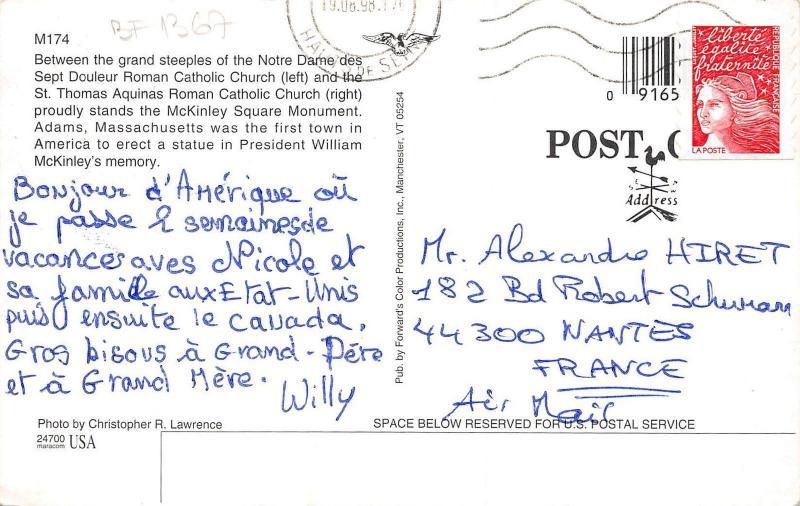 BF 1367
M174
Between the grand steeples of the Notre Dame des
Sept Douleur Roman Catholic Church (left) and the
St. Thomas Aquinas Roman Catholic Church (right)
proudly stands the McKinley Square Monument.
Adams, Massachusetts was the first town in
America to erect a statue in President William
McKinley's memory.
Bonjour d'Amérique où
je passe 2 semaines de
vacances aves Nicole et
sa famille aux Etat-Unis
puis ensuite le canada.
Gros bisous à Grand-Père
et à Grand Mère.
Willy
Photo by Christopher R. Lawrence
24700
maracom USA
Pub. by Forward's Color Productions, Inc., Manchester, VT 05254
19.08.98
0 9165
liberté
égalité
fraternité
RÉPUBLIQUE FRANÇAISE
LA POSTE
POST
Address
Mr. Alexandre HIRET
182 Bd Robert Schuman
44300 NANTES
FRANCE
Air Mail
SPACE BELOW RESERVED FOR U.S. POSTAL SERVICE